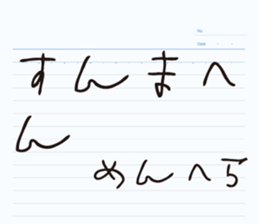 No.
Date ・ ・
すんまへ
ん
めんへら